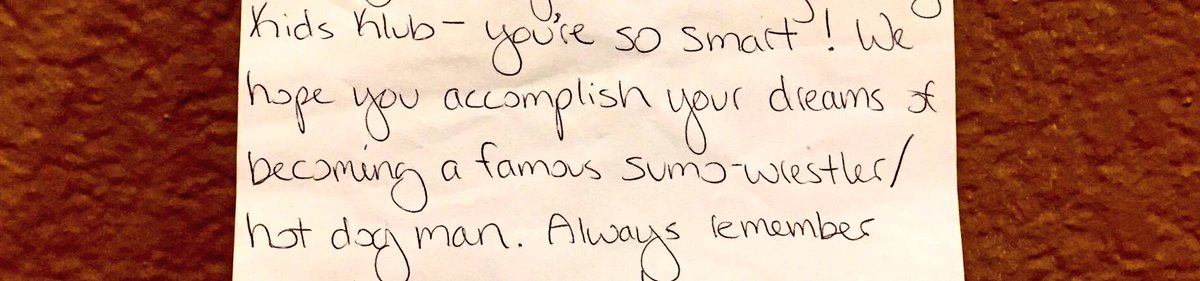 Kids Klub - you're so smart! We
hope you accomplish your dreams of
becoming a famous sumo-wrestler/
hot dog man. Always remember